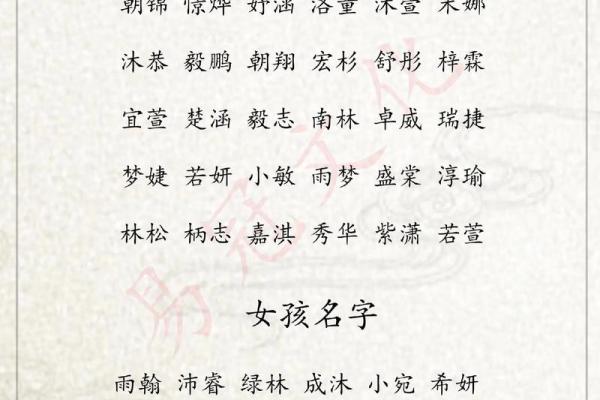 朝锦 惊烨 妤涵 洛童 沐萱 米娜
沐恭 毅鹏 朝翔 宏杉 舒彤 梓霖
宜萱 楚涵 毅志 南林 卓威 瑞捷
梦婕 若妍 小敏 雨梦 盛棠 淳瑜
林松 柄志 嘉淇 秀华 紫潇 若萱
女孩名字
雨翰 沛睿 绿林 成沐 小宛 希妍
易冠文化